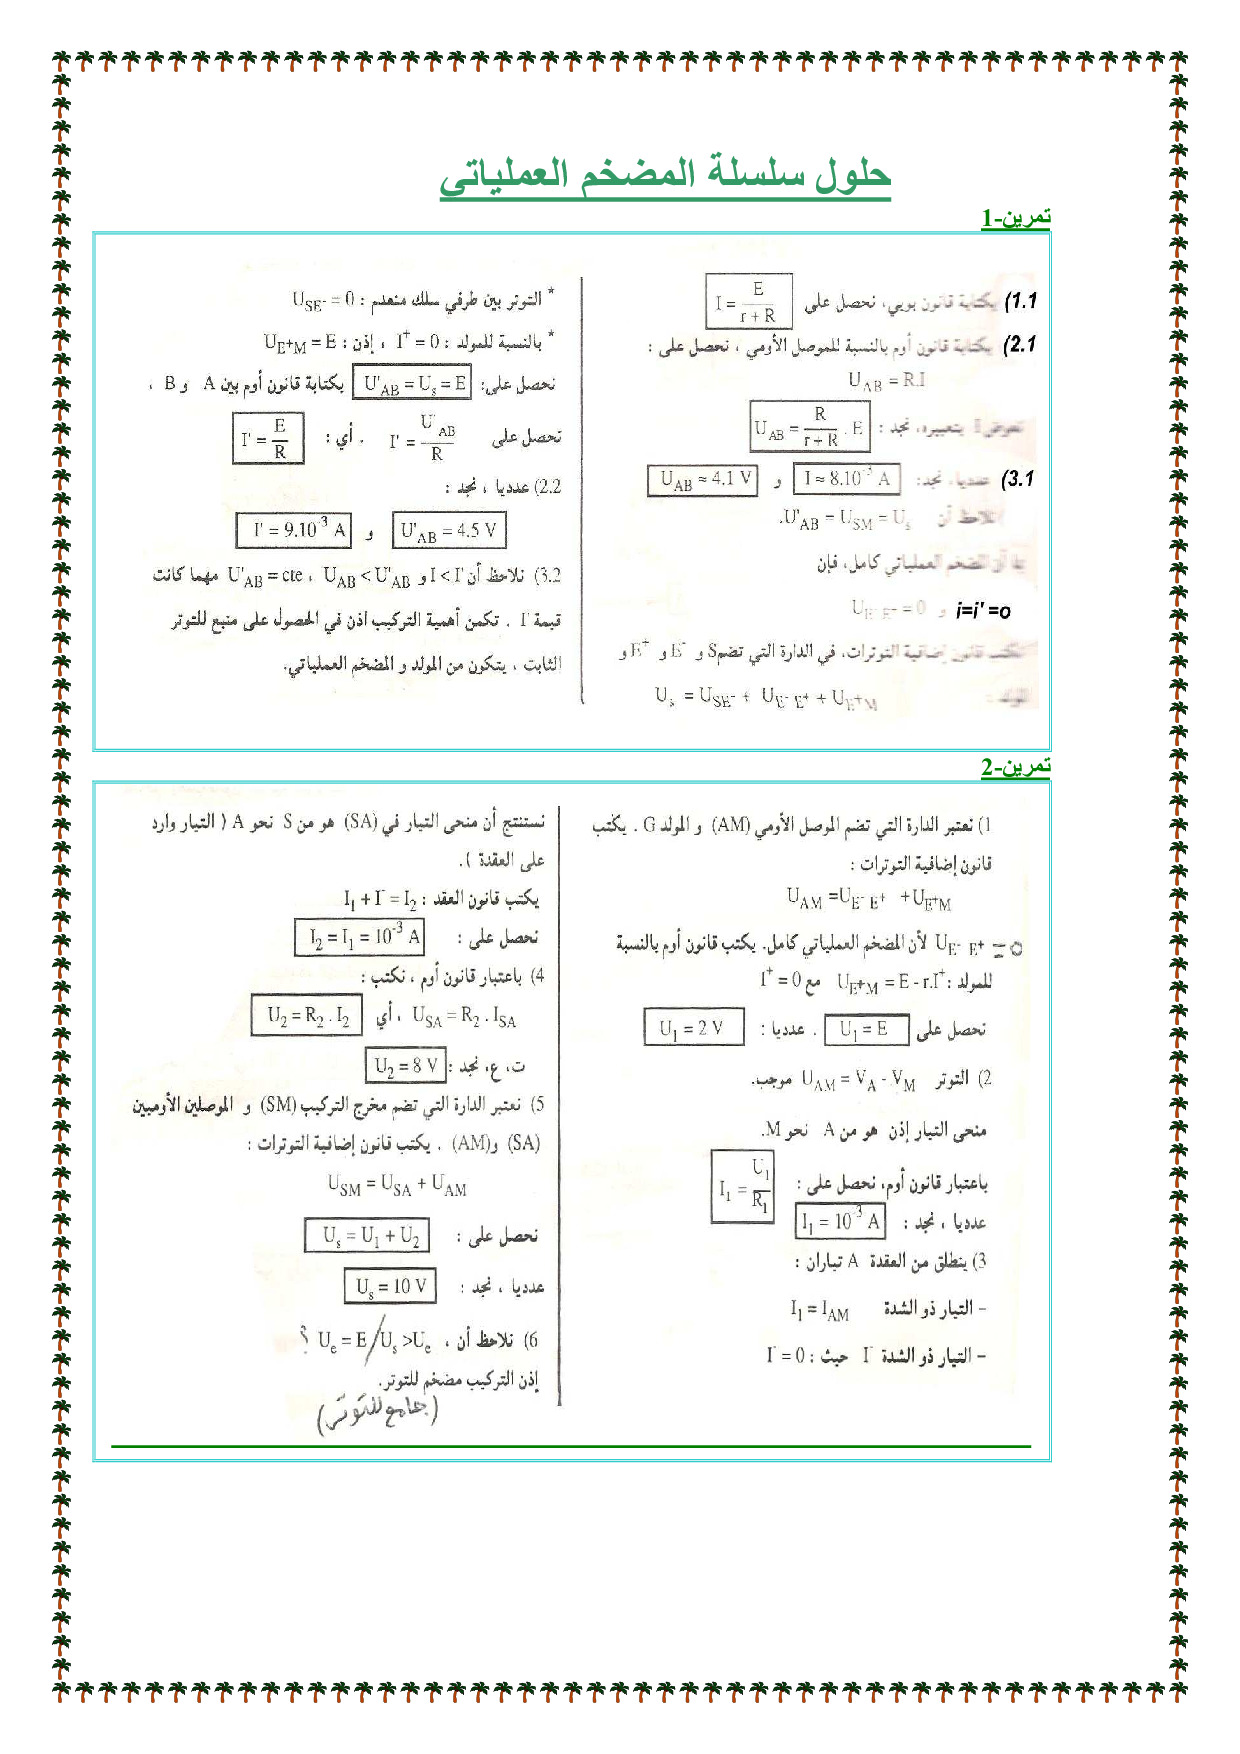 حلول سلسلة المضخم العملياتي
تمرين-1
1.1) بكتابة قانون بويي، نحصل على I = E / (r + R)
2.1) بكتابة قانون أوم بالنسبة للموصل الأومي ، نحصل على :
U_AB = R.I
نعوض I بتعبيره، نجد : U_AB = R / (r + R) . E
3.1) عدديا، نجد: I ≈ 8.10^-3 A و U_AB ≈ 4.1 V
نلاحظ أن U'_AB = U_SM = U_s.
بما أن المضخم العملياتي كامل، فإن
i=i'=o و U_E- E- = 0
نكتب قانون إضافية التوترات، في الدارة التي تضم S و E- و E+ و
المولد :
U_s = U_SE- + U_E- E+ + U_E+M
* التوتر بين طرفي سلك منعدم : U_SE- = 0
* بالنسبة للمولد : I+ = 0 ، إذن : U_E+M = E
نحصل على: U'_AB = U_s = E بكتابة قانون أوم بين A و B ،
نحصل على I' = U'_AB / R ، أي : I' = E / R
2.2) عدديا ، نجد :
U'_AB = 4.5 V و I' = 9.10^-3 A
3.2) نلاحظ أن I < I' و U_AB < U'_AB ، U'_AB = cte مهما كانت
قيمة I' . تكمن أهمية التركيب اذن في الحصول على منبع للتوتر
الثابت ، يتكون من المولد و المضخم العملياتي.
تمرين-2
1) نعتبر الدارة التي تضم الموصل الأومي (AM) و المولد G . يكتب
قانون إضافية التوترات :
U_AM = U_E- E+ + U_E+M
U_E- E+ = 0 لأن المضخم العملياتي كامل. يكتب قانون أوم بالنسبة
للمولد : U_E+M = E - r.I+ مع I+ = 0
نحصل على U_1 = E . عدديا : U_1 = 2 V
2) التوتر U_AM = V_A - V_M موجب.
منحى التيار إذن هو من A نحو M.
باعتبار قانون أوم، نحصل على : I_1 = U_1 / R_1
عدديا ، نجد : I_1 = 10^-3 A
3) ينطلق من العقدة A تياران :
– التيار ذو الشدة I_1 = I_AM
– التيار ذو الشدة I- حيث : I- = 0
نستنتج أن منحى التيار في (SA) هو من S نحو A ( التيار وارد
على العقدة ).
يكتب قانون العقد : I_1 + I- = I_2
نحصل على : I_2 = I_1 = 10^-3 A
4) باعتبار قانون أوم ، نكتب :
U_SA = R_2 . I_SA ، أي U_2 = R_2 . I_2
ت، ع، نجد : U_2 = 8 V
5) نعتبر الدارة التي تضم مخرج التركيب (SM) و الموصلين الأوميين
(SA) و(AM) . يكتب قانون إضافية التوترات :
U_SM = U_SA + U_AM
نحصل على : U_s = U_1 + U_2
عدديا ، نجد : U_s = 10 V
6) نلاحظ أن ، U_e = E / U_s > U_e ؟
إذن التركيب مضخم للتوتر.
(جامع للتوتر)